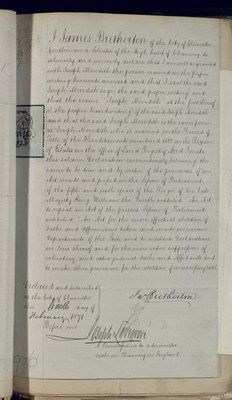 I James Bretherton of the City of Gloucester
Gentleman a Solicitor of the High Court of Chancery do
solemnly and sincerely declare that I am well acquainted
with Joseph Meredith the person named in the paper
writing hereunto annexed and that I saw the said
Joseph Meredith sign the said paper writing and
that the name "Joseph Meredith" at the foot thereof
is the proper handwriting of the said Joseph Meredith
and that the said Joseph Meredith is the same person
as Joseph Meredith who is named in the Record of
Title of the Hereditaments numbered in the Register
of Estates in the Office of Land Registry And I make
this solemn Declaration conscientiously believing the
same to be true and by virtue of the provisions of an
Act made and passed in the Session of Parliament
of the fifth and sixth years of the Reign of his late
Majesty King William the Fourth intituled "An Act
to repeal an Act of the present Session of Parliament
intituled "An Act for the more effectual abolition of
Oaths and Affirmations taken and made in various
Departments of the State and to substitute Declarations
in lieu thereof and for the more entire suppression of
voluntary and extra judicial Oaths and Affidavits and
to make other provisions for the abolition of unnecessary oaths
Declared and subscribed
at the City of Gloucester
this day of
February 1871
Before me
Jas Bretherton
Joseph Lovegrove
A Commissioner to administer
oaths in Chancery in England